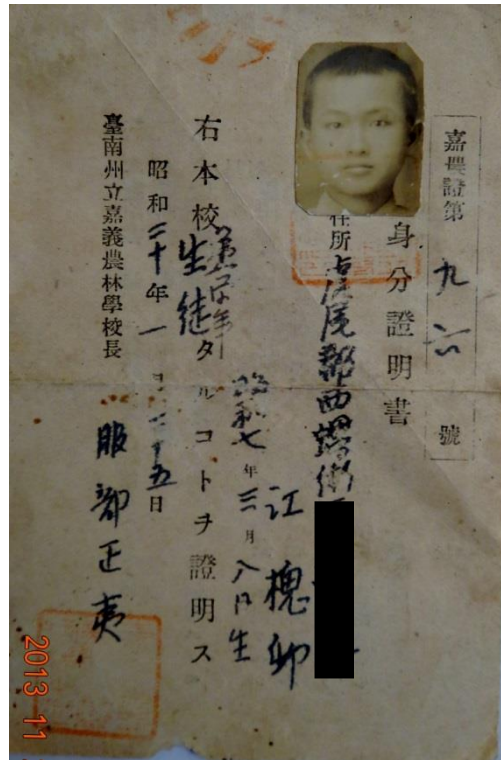 嘉農證第九六號
身分證明書
住所虎尾郡西螺街
江槐卯
昭和七年三月八日生
右本校第 学年生徒タルコトヲ證明ス
昭和二十年一月 十五日
臺南州立嘉義農林學校長
服部正夷
2013 11